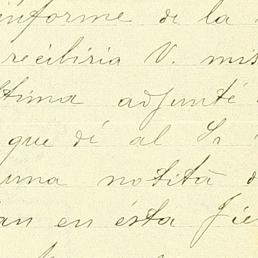 informe de la
recibiria V. mis
tima adjunté
que dí al Sr
una notita d
an en ésta Fie